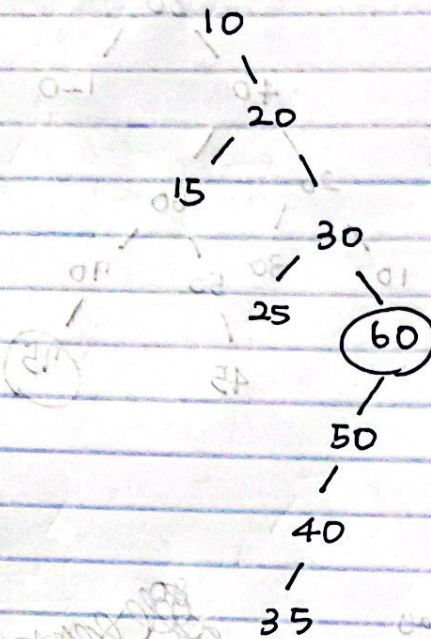 10
20
15
30
25
60
50
40
35